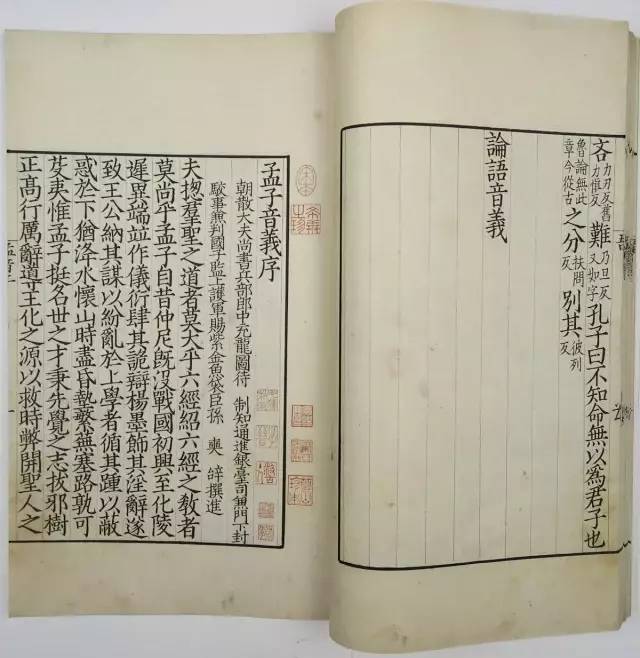 吝力刃反舊力惟反難乃旦反又如字孔子曰不知命無以為君子也
魯論無此章今從古之分扶問反別其彼列反
論語音義
孟子音義序
朝散大夫尚書兵部郎中充龍圖待 制知通進銀臺司兼門下封
駁事兼判國子監上護軍賜紫金魚袋臣孫 奭 撰進
夫揔羣聖之道者莫大乎六經紹六經之教者
莫尚乎孟子自昔仲尼旣沒戰國初興至化陵
遲異端並作儀衍肆其詭辯楊墨飾其淫辭遂
致王公納其謀以紛亂於上學者循其踵以蔽
惑於下猶洚水懷山時盡昏墊繁蕪塞路孰可
芟夷惟孟子挺名世之才秉先覺之志拔邪樹
正高行厲辭導王化之源以救時弊開聖人之